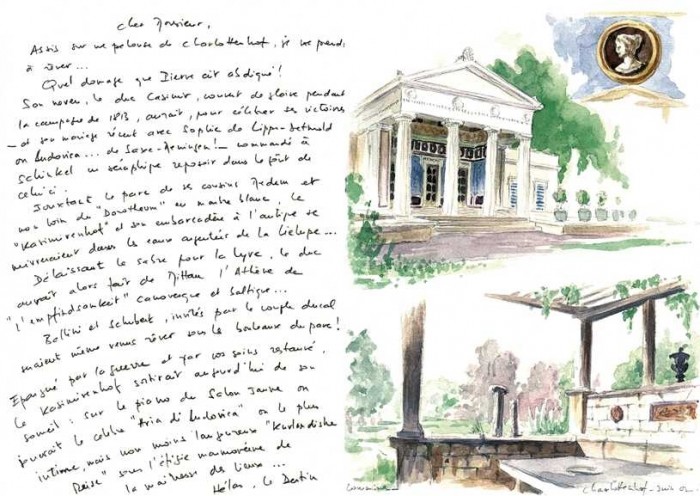 Cher Monsieur,
Assis sur une pelouse de Charlottenhof, je me prends
à rêver...
Quel dommage que Pierre ait abdiqué!
Son neveu, le duc Casimir, couvert de gloire pendant
la campagne de 1813, aurait, pour célébrer ses victoires
_ et son mariage récent avec Sophie de Lippe-Detmold
ou Ludovica... de Saxe-Meiningen! _ commandé à
Schinkel un périptère reposoir dans le goût de
celui-ci.
Jouxtant le parc de ses cousins Medem et
non loin du "Dorotheum" en marbre blanc, le
"Kasimirenhof" et son embarcadère à l'antique se
mireraient dans les eaux argentées de la Lielupe...
Délaissant le sabre pour la lyre, le duc
aurait alors fait de Mittau l'Athène de
l'"Empfindsamkeit" Hanovergue et baltique...
Bellini et Schubert, invités par le couple ducal
seraient même venus rêver sous les bouleaux du parc!
Epargné par la guerre et par vos soins restauré,
le Kasimirenhof sortirait aujourd'hui de son
sommeil: sur le piano du Salon Jaune on
jouerait le célèbre "Aria di Ludovica" ou le plus
intime, mais non moins langoureux "Kurländische
Reise" sous l'effigie marmoréenne de
la maîtresse des lieux...
Hélas, le Destin
Charlottenhof - juin 02